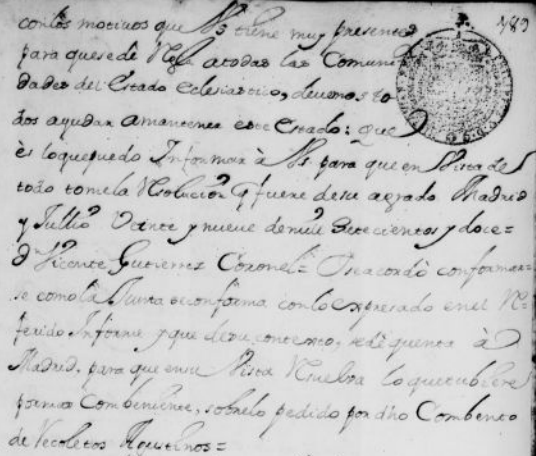 con los motivos que VS tiene muy presentes 789
para que se dé Regla a todas las Comuni
dades del Estado Eclesiastico, devemos to
dos ayudar a mantener este Estado: Que
es lo que puedo Informar à VS. para que en Vista de
todo tome la Resolucion q fuere de su agrado Madrid
y Jullio Veinte y nueve de mill Setecientos y doce=
Dn Vicente Gutierrez Coronel= I se acordò conformar=
se como la Junta se conforma con lo expresado en el Re=
ferido Informe y que de su contexto, se dè quenta à
Madrid, para que en su Vista Resuelva lo que tubiere
por mas Combeniente, sobre lo pedido por dho Combento
de Recoletos Agustinos=